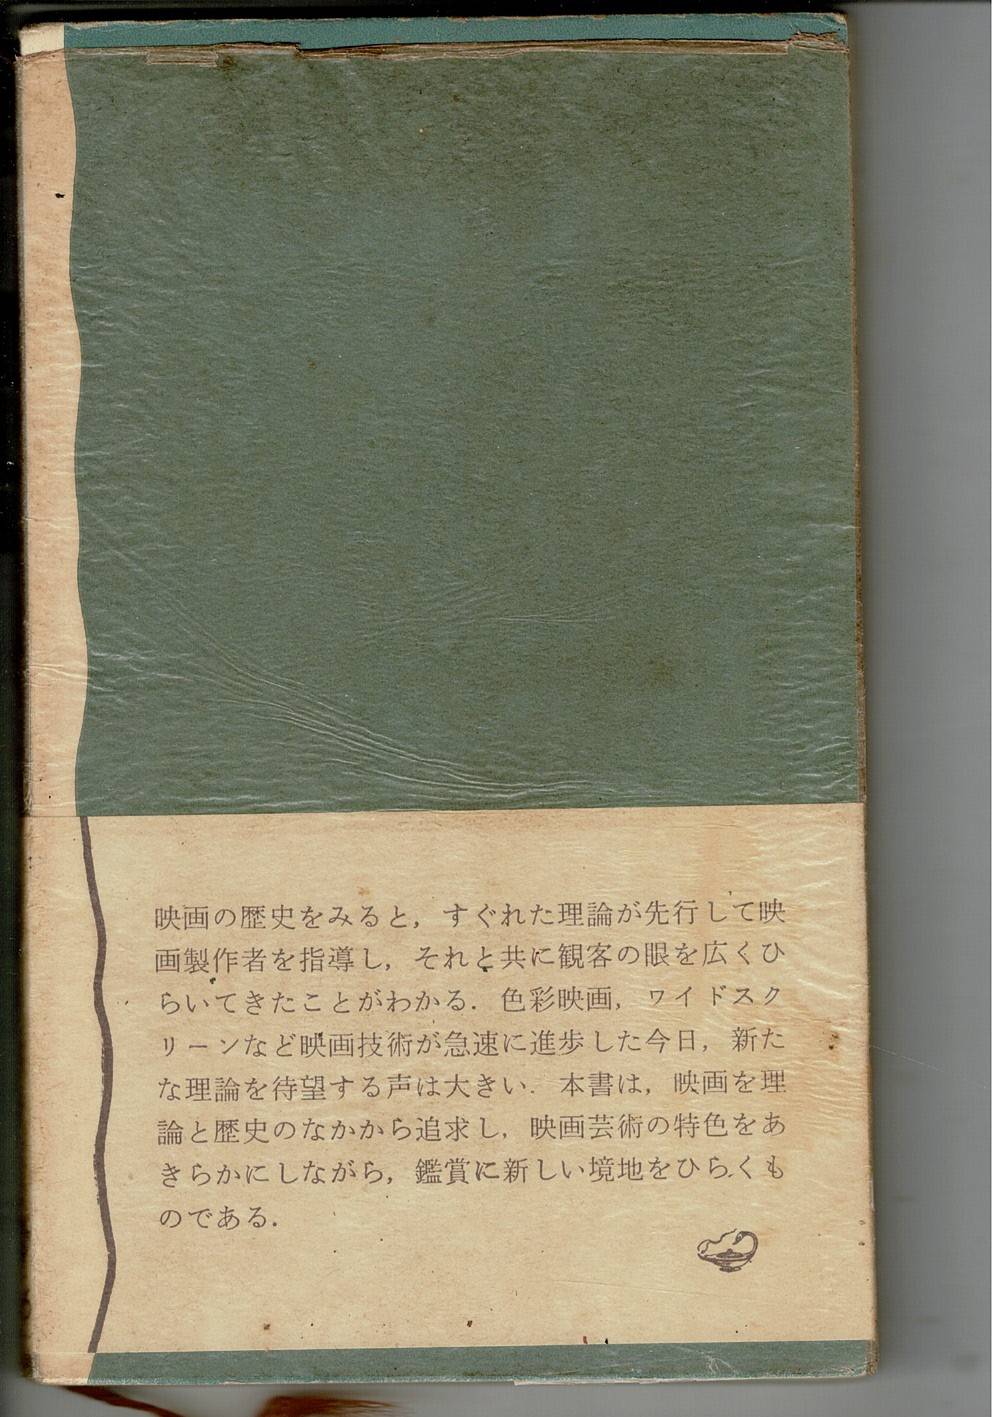 映画の歴史をみると，すぐれた理論が先行して映
画製作者を指導し，それと共に観客の眼を広くひ
らいてきたことがわかる．色彩映画，ワイドスク
リーンなど映画技術が急速に進歩した今日，新た
な理論を待望する声は大きい．本書は，映画を理
論と歴史のなかから追求し，映画芸術の特色をあ
きらかにしながら，鑑賞に新しい境地をひらくも
のである．